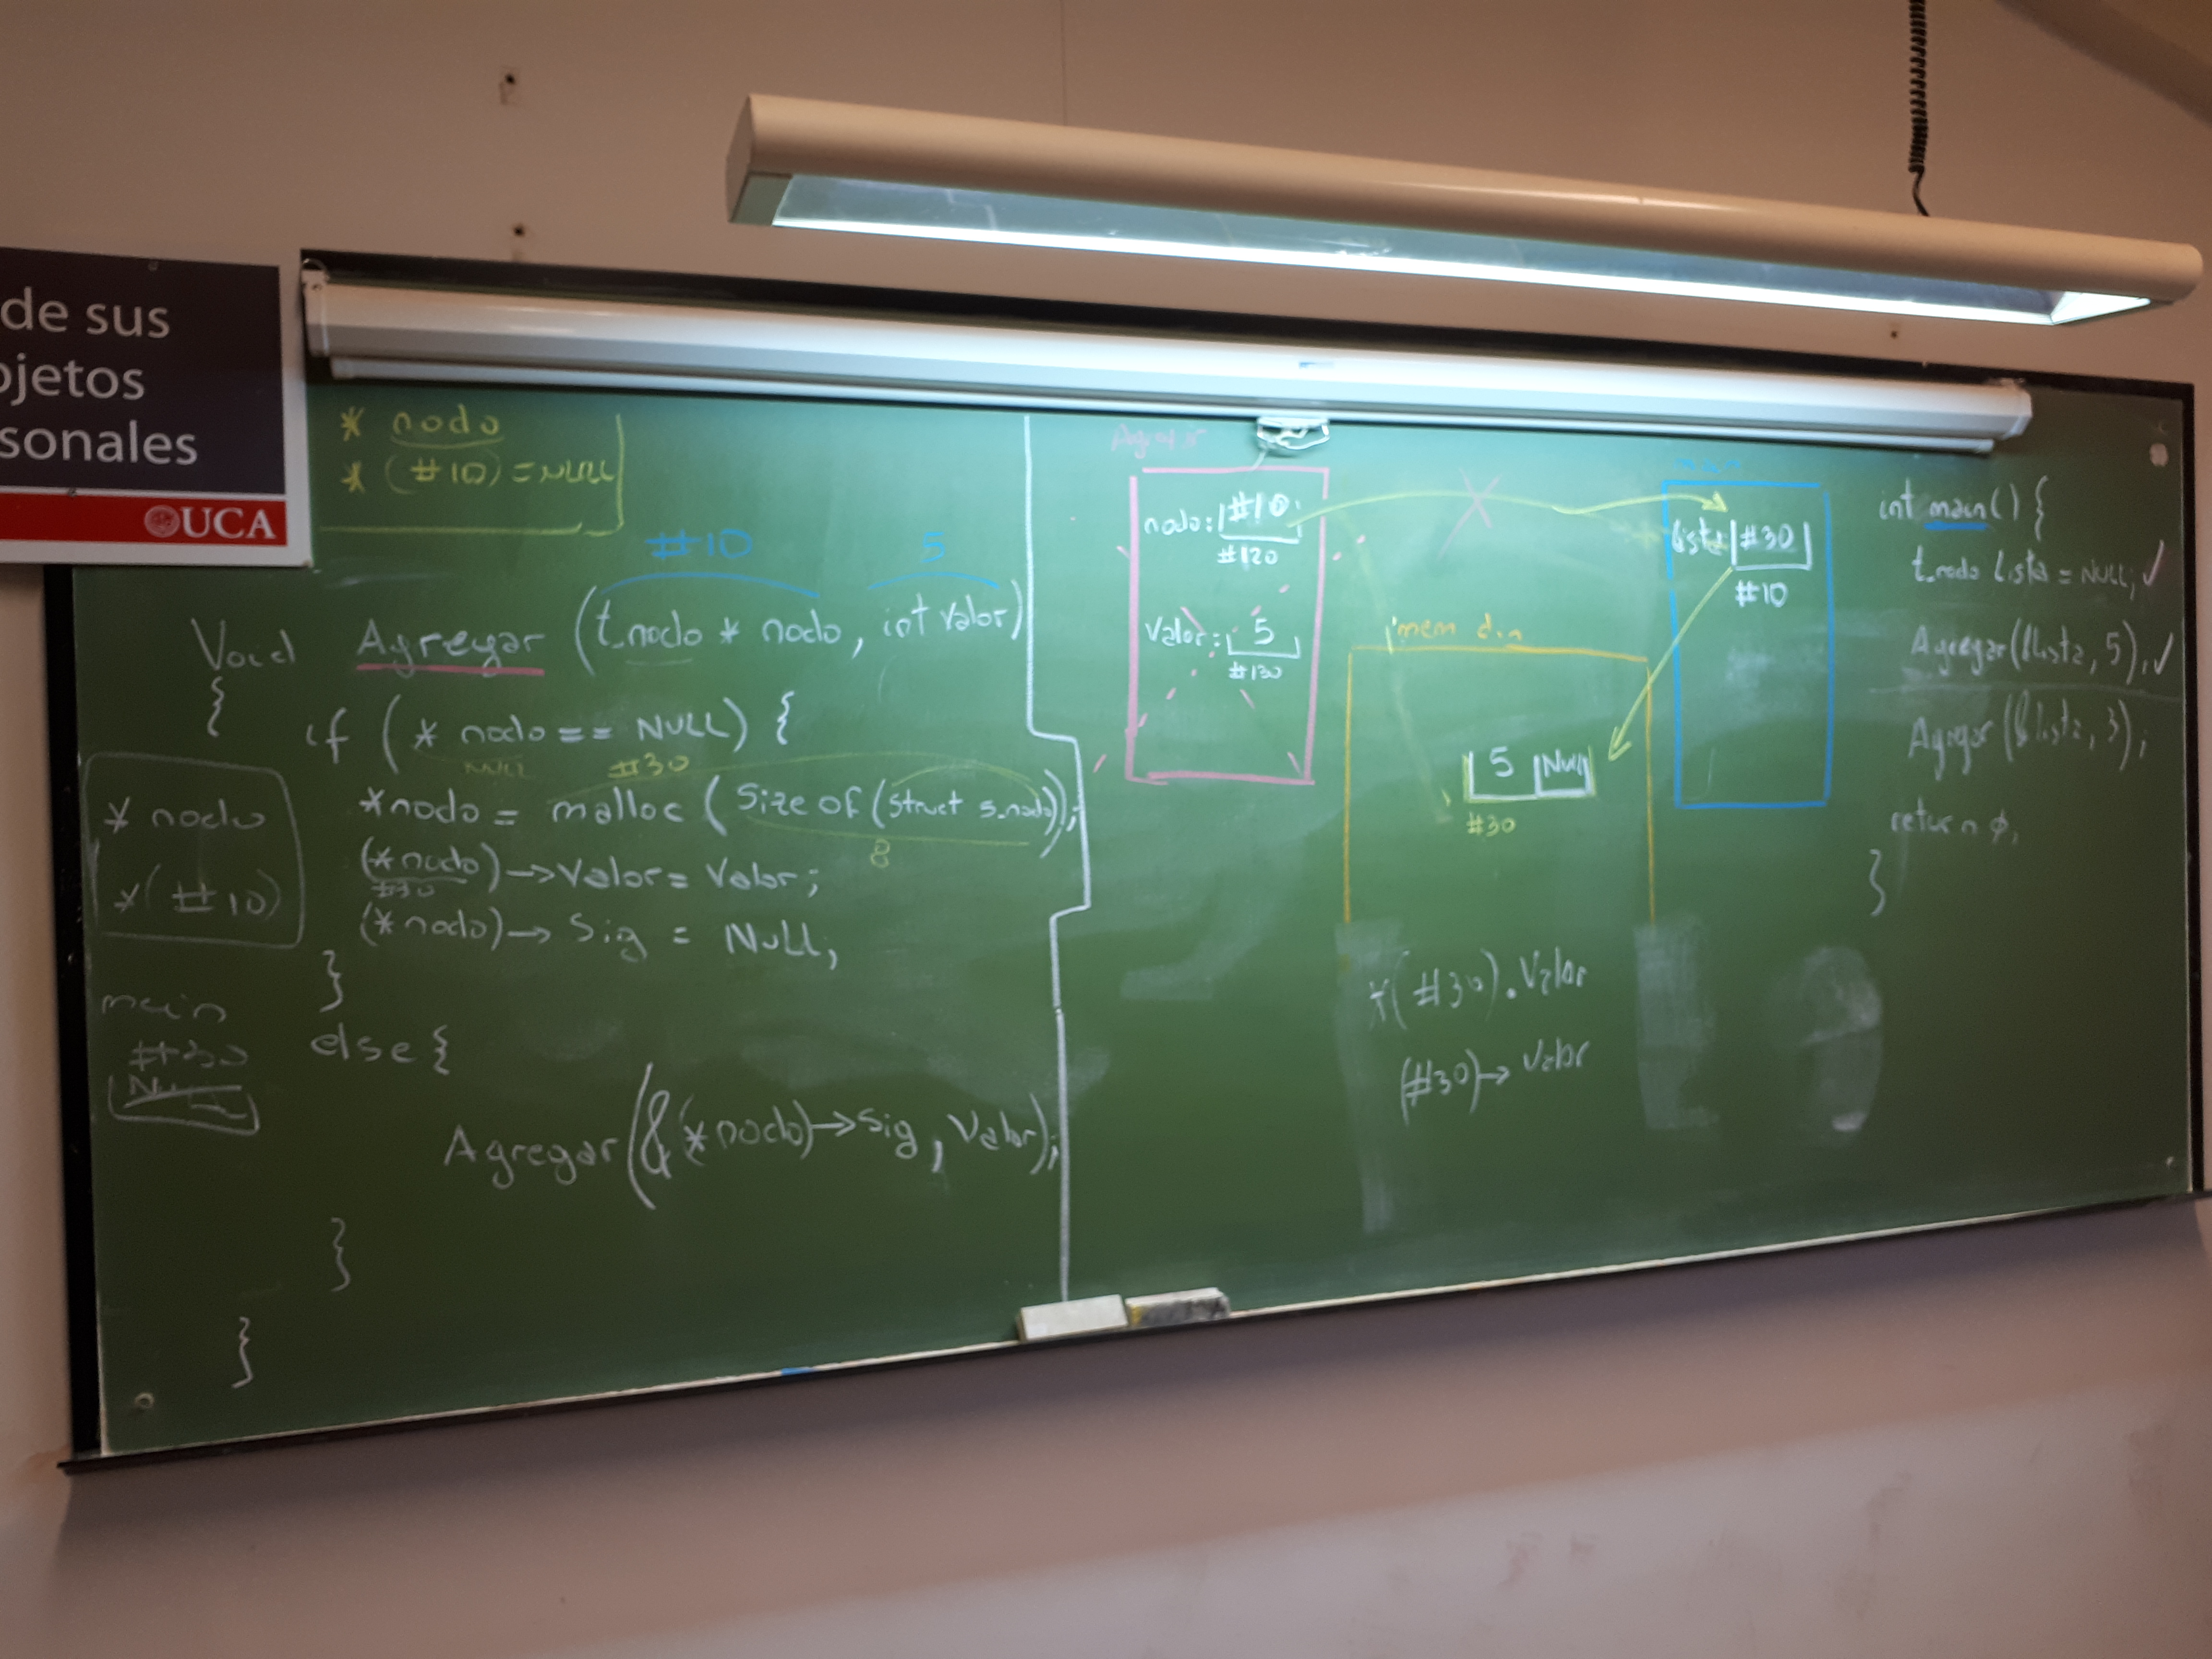 de sus
ojetos
sonales
UCA
* nodo
* (#10) = NULL
#10 5
Void Agregar (t_nodo * nodo, int valor)
{
if (* nodo == NULL) {
NULL #30
*nodo = malloc (Size of (struct s_nodo));
8
(*nodo) → Valor = Valor;
#30
(*nodo) → Sig = NULL;
}
else {
Agregar (& (*nodo) → Sig, Valor);
}
}
* nodo
* (#10)
main
#30
Agregar
nodo: #10
#120
Valor: 5
#130
mem din
5 Null
#30
*(#30).Valor
(#30) → Valor
main
lista #30
#10
int main() {
t_nodo lista = NULL; ✓
Agregar(&lista, 5); ✓
Agregar(&lista, 3);
return ø;
}